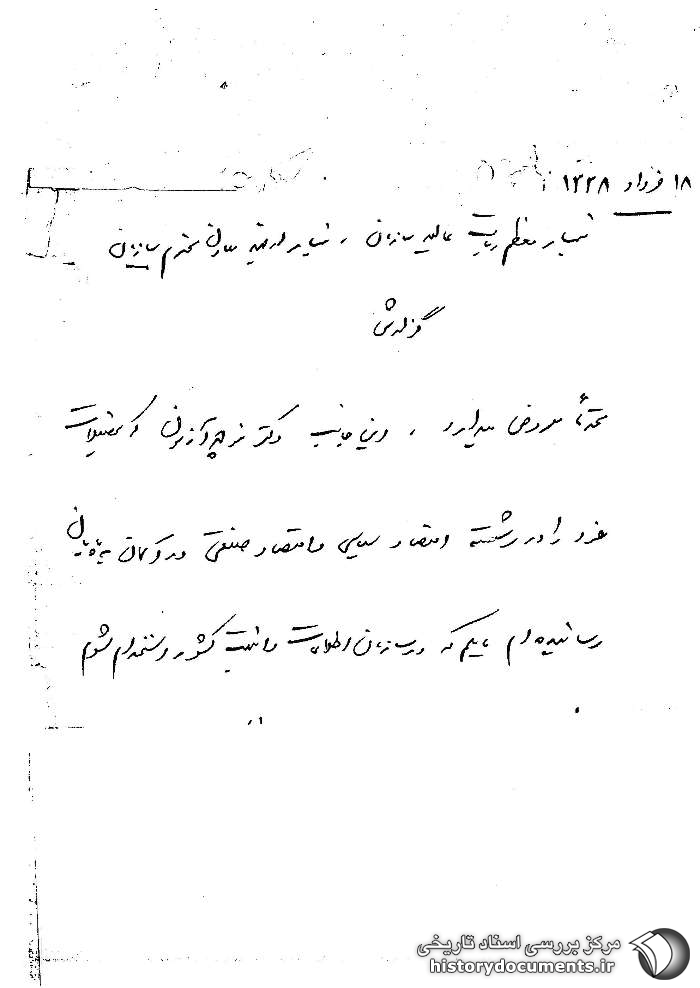 ۱۸ خرداد ۱۳۳۸
تیمسار معظم ریاست عالیه سازمان ، تیمسار معاون محترم سازمان
گزارش
محترماً معروض میدارد ، اینجانب دکتر که تحصیلات
خود را در رشته اقتصاد سیاسی و اقتصاد صنعتی در آلمان بپایان
رسانیده‌ام مایلم که در سازمان اطلاعات و امنیت کشور استخدام شوم
مرکز بررسی اسناد تاریخی
historydocuments.ir